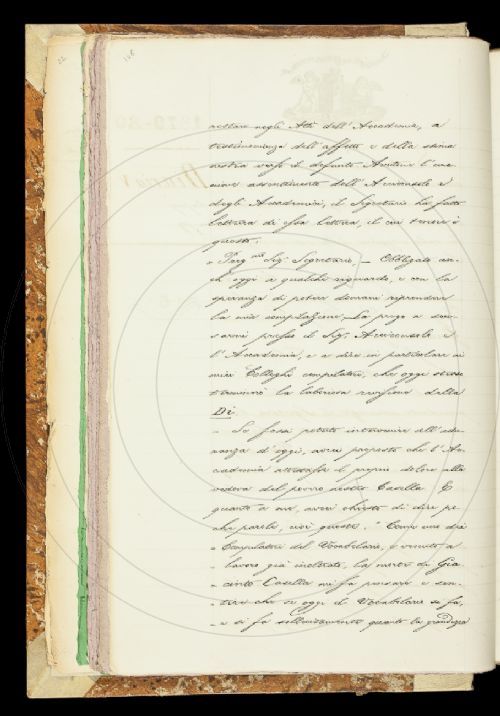 126
restare negli Atti dell'Accademia, a
testimonianza dell'affetto e della stima
nostra verso il defunto
assentimento dell'Arciconsolo e
degli Accademici, il Segretario ha fatto
lettura di essa lettera, il cui tenore è
questo:
" Preg.mo Sig. Segretario, — Obbligato an-
ch'oggi a qualche riguardo, e con la
speranza di potere domani riprendere
la mia compilazione, La prego a scu-
sarmi presso il Sig. Arciconsolo e
l'Accademia, e a dire in particolare ai
miei Colleghi compilatori, che oggi stesso
terminerò la laboriosa revisione della
Di
" Se fossi potuto intervenire all'adu-
nanza di oggi, avrei proposto che l'Ac-
cademia attestasse il proprio dolore alla
vedova del povero nostro Casella. E
quanto a me, avrei chiesto di dire po-
che parole, cioè queste: " Come uno dei
" Compilatori del Vocabolario, e venuto a
" lavoro già inoltrato, la morte di Gia-
" cinto Casella mi fa pensare e sen-
" tire che se oggi il Vocabolario si fa,
" e si fa sollecitamente quanto la grandezza